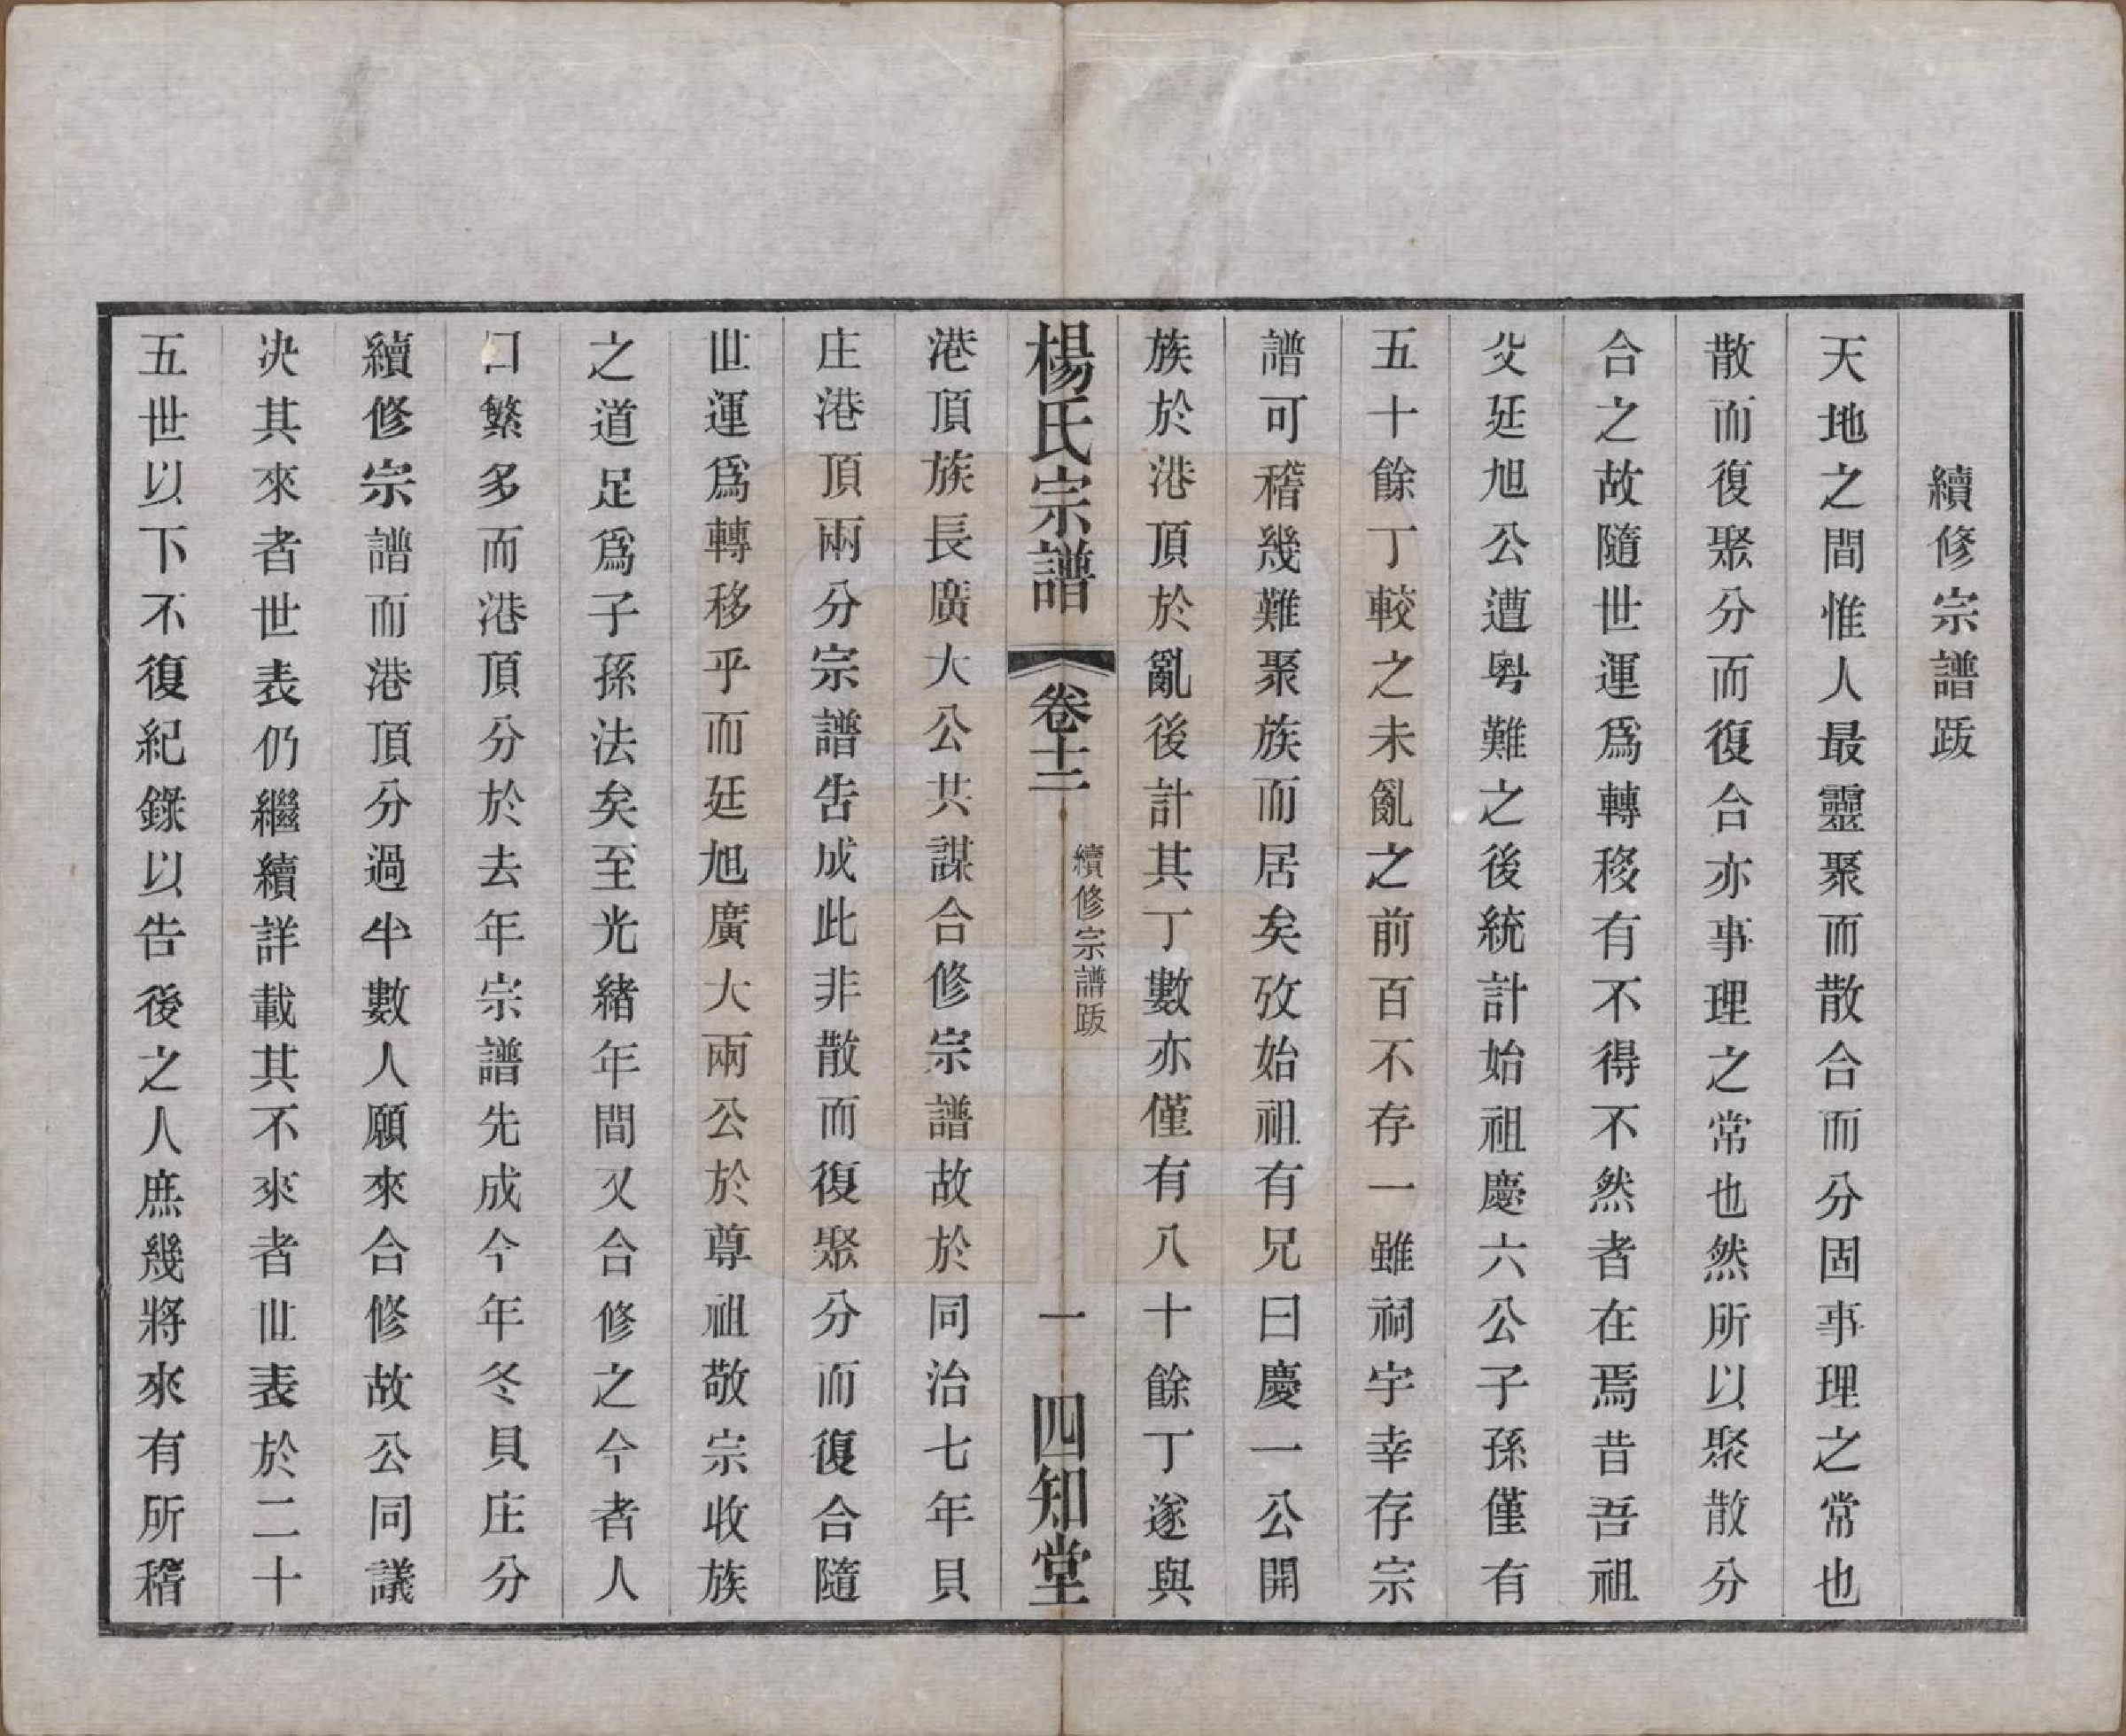 續修宗譜䟦
天地之間惟人最靈聚而散合而分固事理之常也
散而復聚分而復合亦事理之常也然所以聚散分
合之故隨世運爲轉移有不得不然者在焉昔吾祖
父廷旭公遭粤難之後統計始祖慶六公子孫僅有
五十餘丁較之未亂之前百不存一雖祠宇幸存宗
譜可稽幾難聚族而居矣攷始祖有兄曰慶一公開
族於港頂於亂後計其丁數亦僅有八十餘丁遂與
楊氏宗譜 卷十二 續修宗譜䟦 一 四知堂
港頂族長廣大公共謀合修宗譜故於同治七年貝
庄港頂兩分宗譜告成此非散而復聚分而復合隨
世運爲轉移乎而廷旭廣大兩公於尊祖敬宗收族
之道足爲子孫法矣至光緒年間又合修之今者人
口繁多而港頂分於去年宗譜先成今年冬貝庄分
續修宗譜而港頂分過半數人願來合修故公同議
决其來者世表仍繼續詳載其不來者世表於二十
五世以下不復紀錄以告後之人庶幾將來有所稽